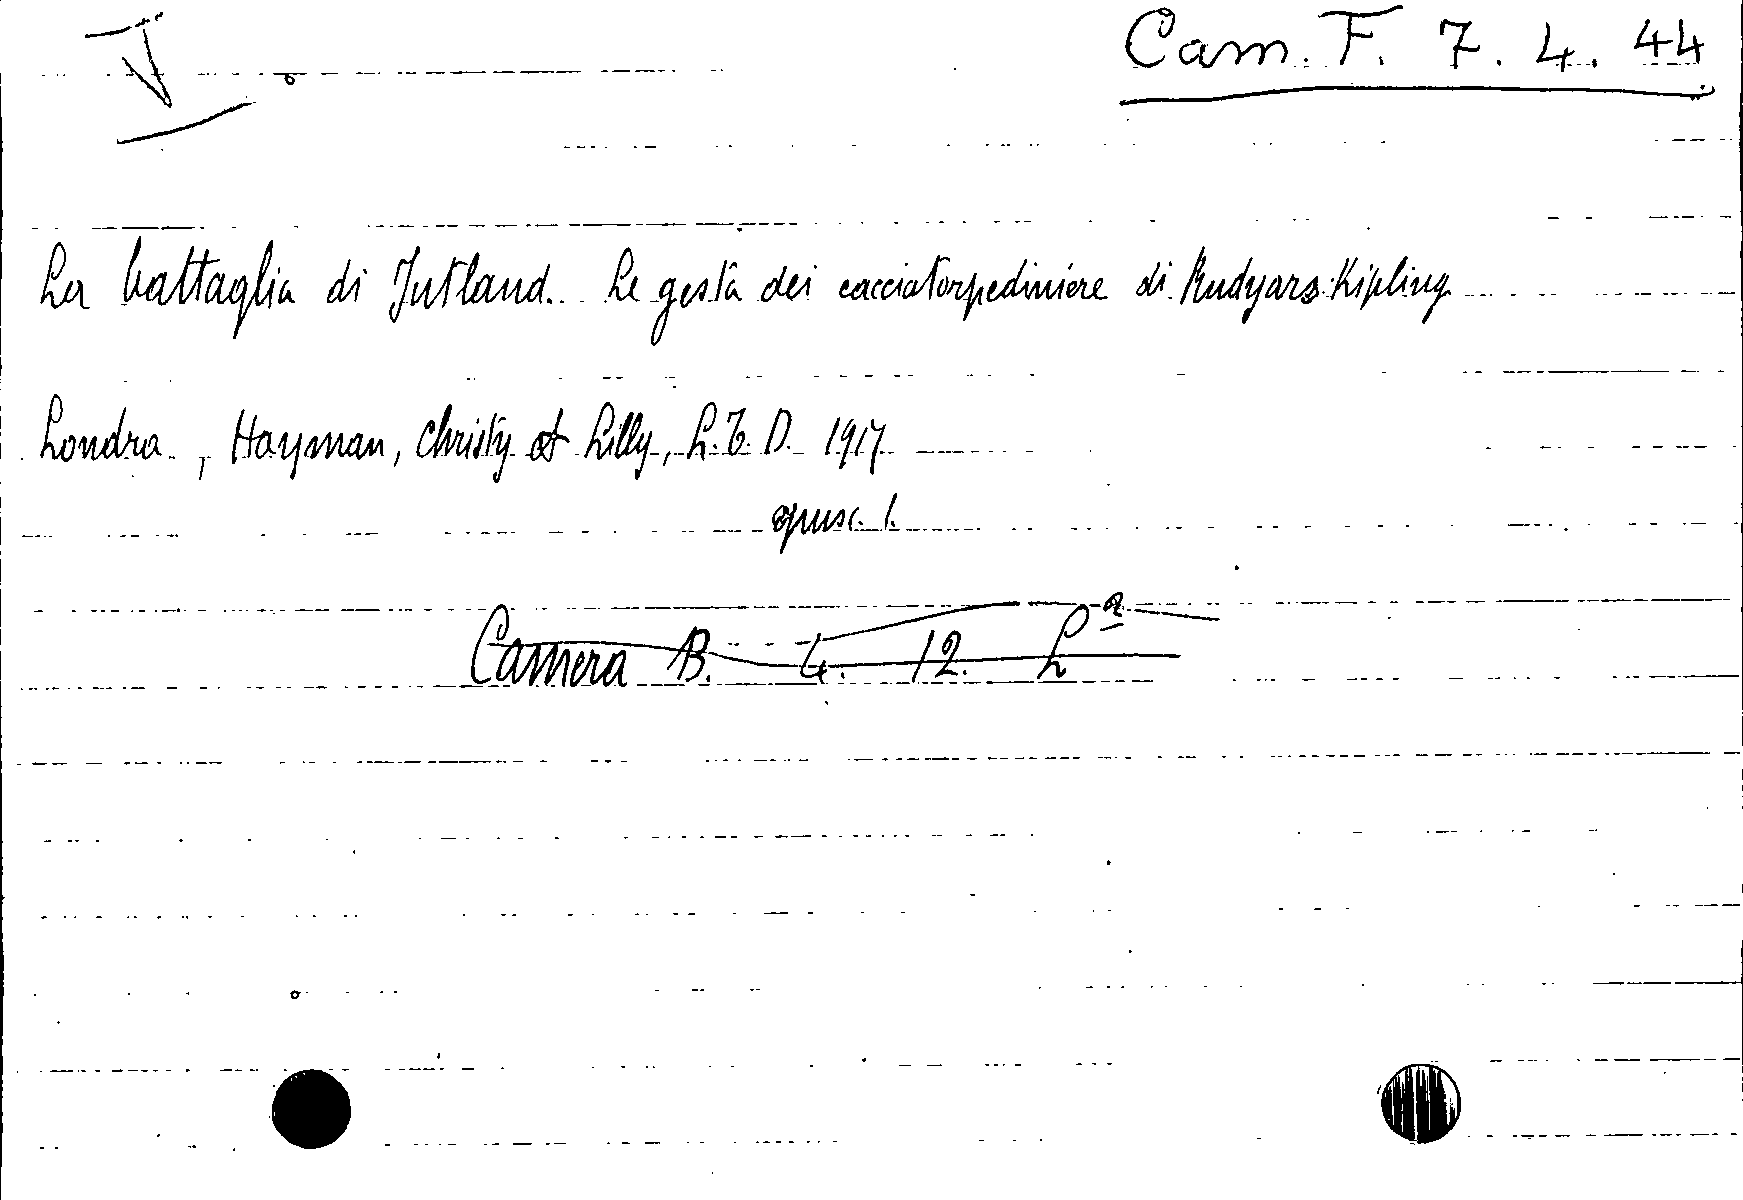 V
Cam. F. 7. 4. 44
La battaglia di Jutland. Le gesta dei cacciatorpediniere di Rudyars Kipling
Londra, Hayman, Christy et Lilly, L.T.D. 1917
opusc. 1.
Camera B. 4. 12. L²